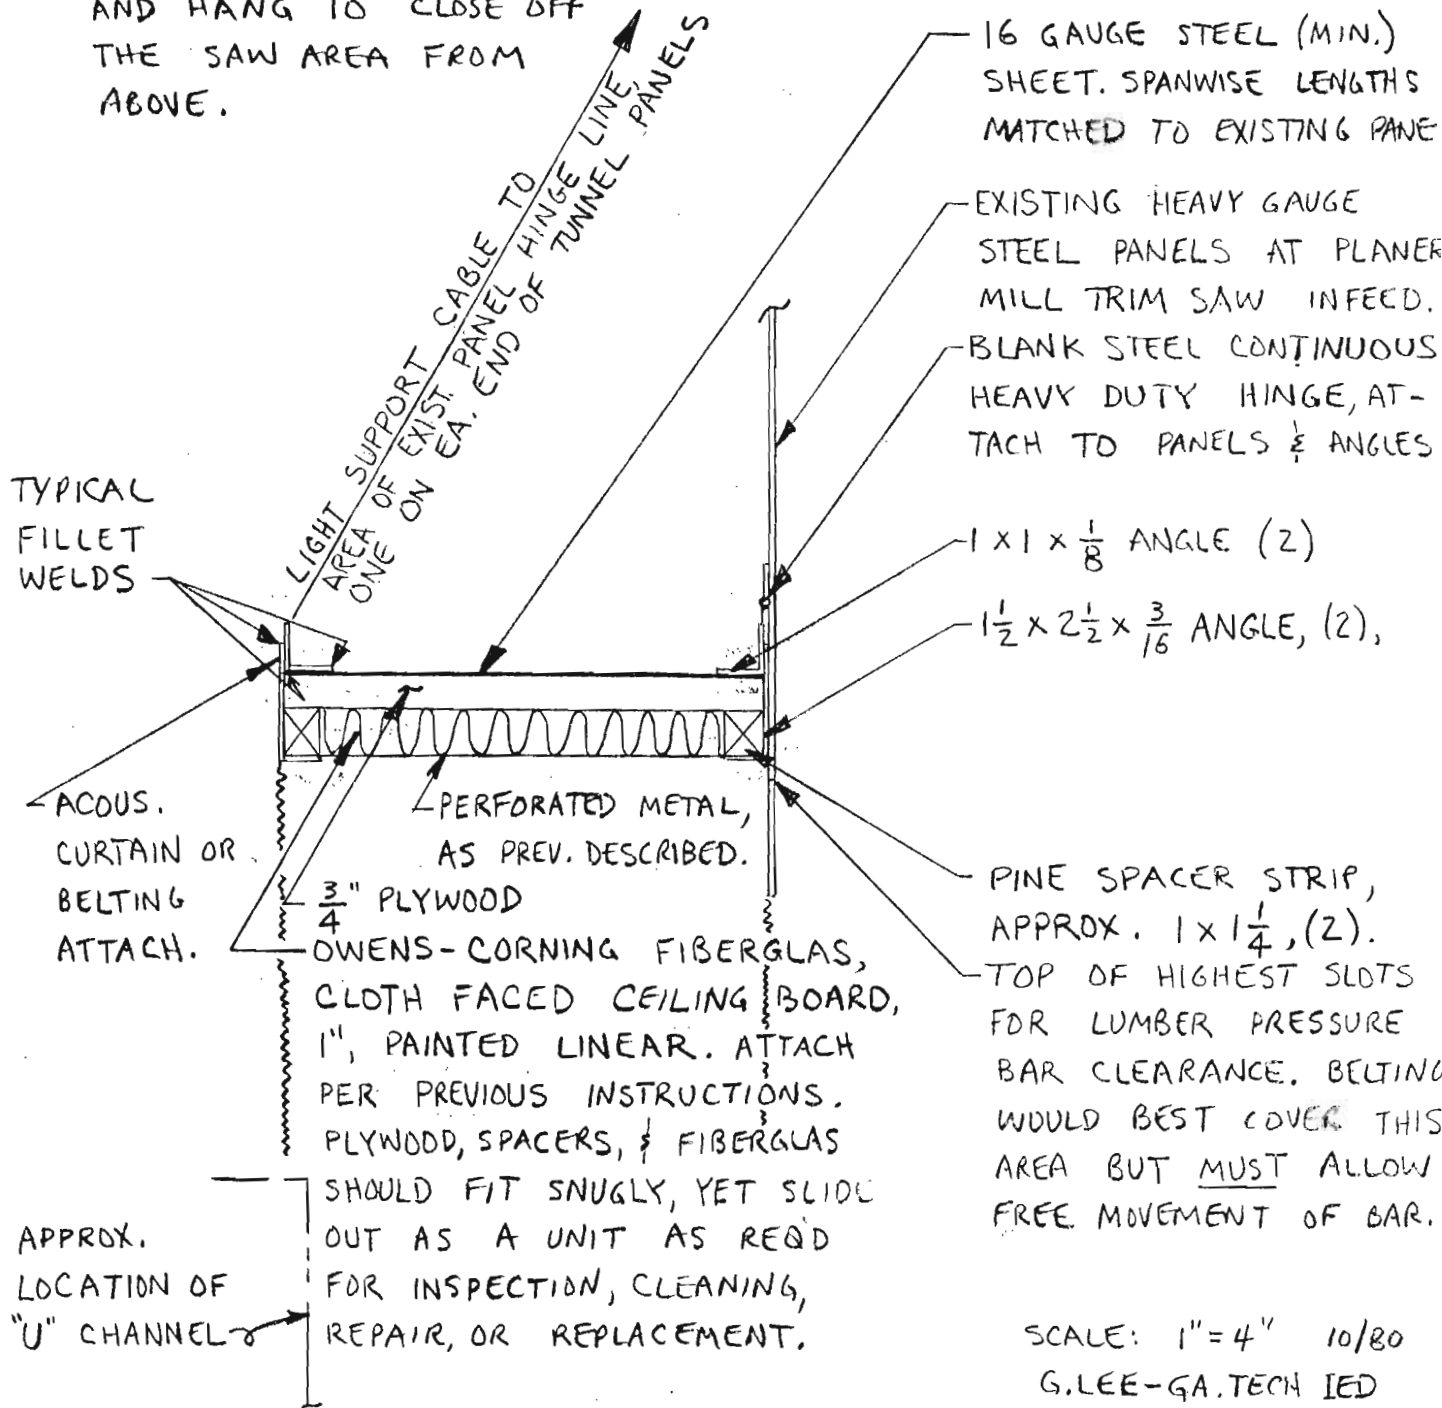 AND HANG TO CLOSE OFF
THE SAW AREA FROM
ABOVE.
LIGHT SUPPORT CABLE TO
AREA OF EXIST. PANEL HINGE LINE,
ONE ON EA. END OF TUNNEL PANELS
16 GAUGE STEEL (MIN.)
SHEET. SPANWISE LENGTHS
MATCHED TO EXISTING PANE
EXISTING HEAVY GAUGE
STEEL PANELS AT PLANER
MILL TRIM SAW INFEED.
BLANK STEEL CONTINUOUS
HEAVY DUTY HINGE, AT-
TACH TO PANELS & ANGLES
1 x 1 x 1/8 ANGLE (2)
1 1/2 x 2 1/2 x 3/16 ANGLE, (2),
TYPICAL
FILLET
WELDS
ACOUS.
CURTAIN OR
BELTING
ATTACH.
PERFORATED METAL,
AS PREV. DESCRIBED.
3/4" PLYWOOD
OWENS-CORNING FIBERGLAS,
CLOTH FACED CEILING BOARD,
1", PAINTED LINEAR. ATTACH
PER PREVIOUS INSTRUCTIONS.
PLYWOOD, SPACERS, & FIBERGLAS
SHOULD FIT SNUGLY, YET SLIDE
OUT AS A UNIT AS REQ'D
FOR INSPECTION, CLEANING,
REPAIR, OR REPLACEMENT.
PINE SPACER STRIP,
APPROX. 1 x 1 1/4, (2).
TOP OF HIGHEST SLOTS
FOR LUMBER PRESSURE
BAR CLEARANCE. BELTING
WOULD BEST COVER THIS
AREA BUT MUST ALLOW
FREE MOVEMENT OF BAR.
APPROX.
LOCATION OF
"U" CHANNEL
SCALE: 1" = 4" 10/80
G.LEE-GA.TECH IED